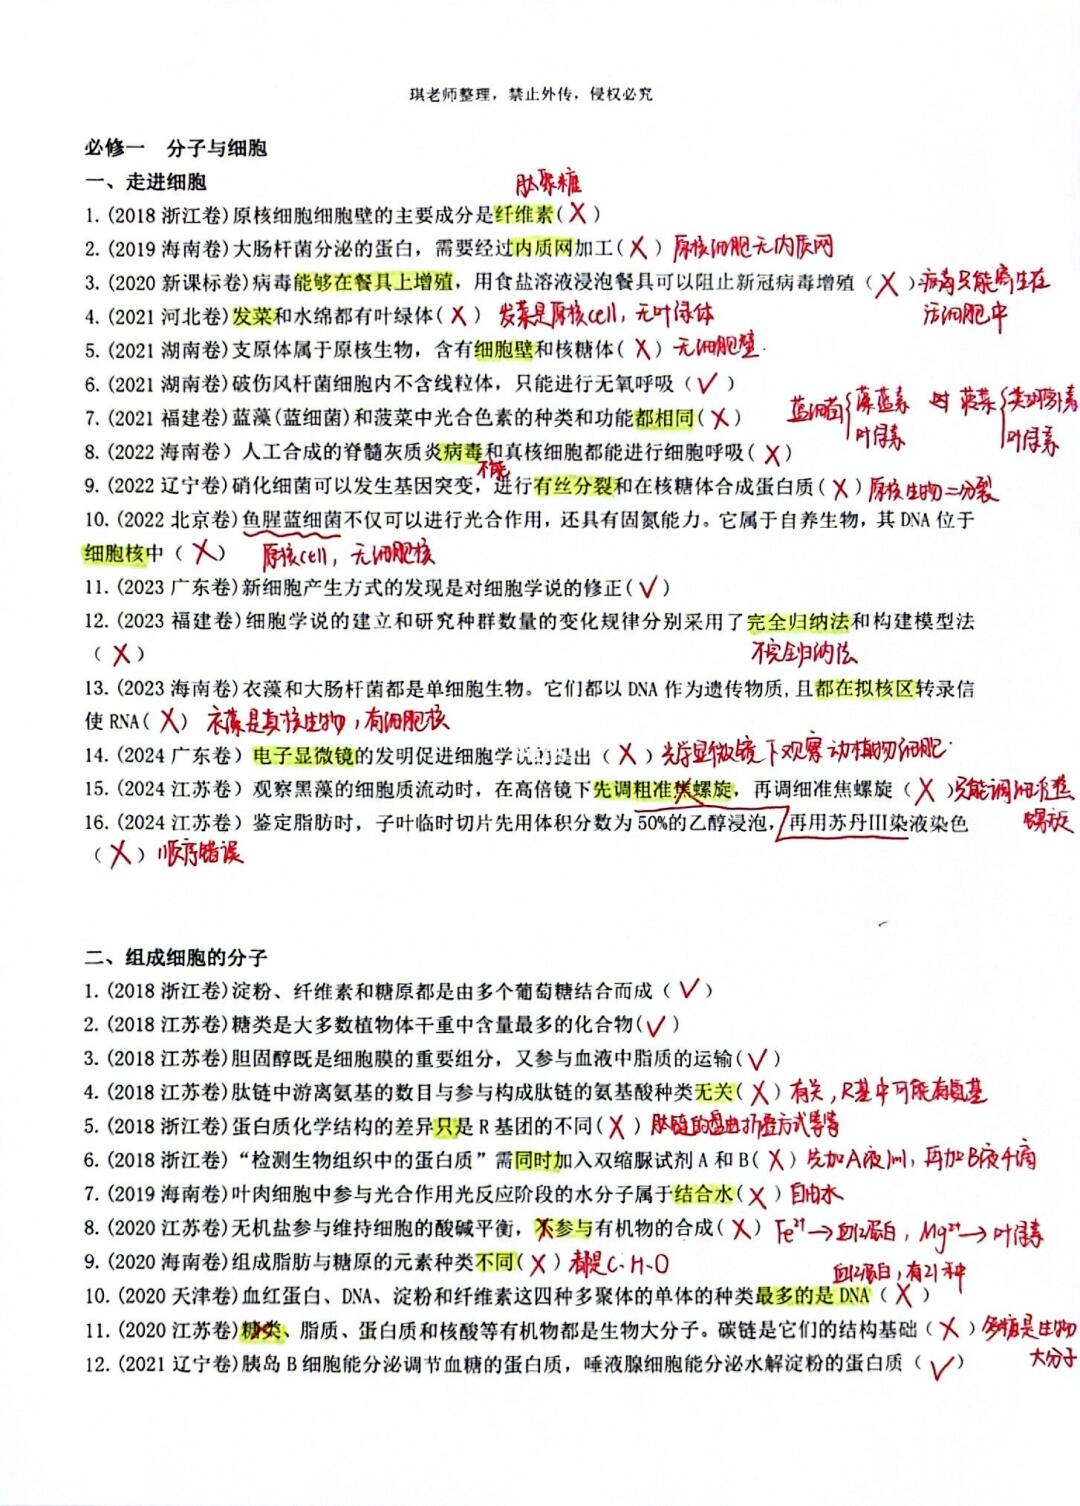 琪老师整理，禁止外传，侵权必究
必修一 分子与细胞
一、走进细胞
肽聚糖
1. (2018 浙江卷)原核细胞细胞壁的主要成分是纤维素(X)
2. (2019 海南卷)大肠杆菌分泌的蛋白，需要经过内质网加工(X) 原核细胞无内质网
3. (2020 新课标卷)病毒能够在餐具上增殖，用食盐溶液浸泡餐具可以阻止新冠病毒增殖（X）病毒只能寄生在
活细胞中
4. (2021 河北卷) 发菜和水绵都有叶绿体(X) 发菜是原核cell，无叶绿体
5. (2021 湖南卷)支原体属于原核生物，含有细胞壁和核糖体(X) 无细胞壁.
6. (2021 湖南卷)破伤风杆菌细胞内不含线粒体，只能进行无氧呼吸（√）
7. (2021 福建卷)蓝藻(蓝细菌)和菠菜中光合色素的种类和功能都相同(X) 蓝细菌{藻蓝素 叶绿素 菠菜{类胡萝卜素 叶绿素
8. (2022 海南卷）人工合成的脊髓灰质炎病毒和真核细胞都能进行细胞呼吸(X)
不能
9. (2022 辽宁卷)硝化细菌可以发生基因突变，进行有丝分裂和在核糖体合成蛋白质(X) 原核生物二分裂
10. (2022 北京卷)鱼腥蓝细菌不仅可以进行光合作用，还具有固氮能力。它属于自养生物，其 DNA 位于
细胞核中（X） 原核cell，无细胞核
11. (2023 广东卷)新细胞产生方式的发现是对细胞学说的修正(√)
12. (2023 福建卷)细胞学说的建立和研究种群数量的变化规律分别采用了完全归纳法和构建模型法
（X） 不完全归纳法
13. (2023 海南卷)衣藻和大肠杆菌都是单细胞生物。它们都以 DNA 作为遗传物质,且都在拟核区转录信
使 RNA(X) 衣藻是真核生物，有细胞核
14. (2024 广东卷) 电子显微镜的发明促进细胞学说的提出（X）光学显微镜下观察动植物细胞.
15. (2024 江苏卷）观察黑藻的细胞质流动时，在高倍镜下先调粗准焦螺旋，再调细准焦螺旋（X）只能调细准焦
螺旋
16. (2024 江苏卷）鉴定脂肪时，子叶临时切片先用体积分数为 50%的乙醇浸泡，再用苏丹III染液染色
（X）顺序错误
二、组成细胞的分子
1. (2018 浙江卷)淀粉、纤维素和糖原都是由多个葡萄糖结合而成（√）
2. (2018 江苏卷)糖类是大多数植物体干重中含量最多的化合物(√)
3. (2018 江苏卷)胆固醇既是细胞膜的重要组分，又参与血液中脂质的运输(√)
4. (2018 江苏卷)肽链中游离氨基的数目与参与构成肽链的氨基酸种类无关(X) 有关，R基中可能有氨基
5. (2018 浙江卷)蛋白质化学结构的差异只是 R 基团的不同(X) 肽链的盘曲折叠方式等等
6. (2018 浙江卷)“检测生物组织中的蛋白质”需同时加入双缩脲试剂 A 和 B(X) 先加A液1ml，再加B液4滴
7. (2019 海南卷)叶肉细胞中参与光合作用光反应阶段的水分子属于结合水(X) 自由水
8. (2020 江苏卷)无机盐参与维持细胞的酸碱平衡，不参与有机物的合成(X) Fe²⁺→血红蛋白，Mg²⁺→叶绿素
9. (2020 海南卷)组成脂肪与糖原的元素种类不同(X) 都是C.H.O
血红蛋白，有21种
10. (2020 天津卷)血红蛋白、DNA、淀粉和纤维素这四种多聚体的单体的种类最多的是 DNA（X）
11. (2020 江苏卷)糖类、脂质、蛋白质和核酸等有机物都是生物大分子。碳链是它们的结构基础（X）多糖是生物
大分子
12. (2021 辽宁卷)胰岛 B 细胞能分泌调节血糖的蛋白质，唾液腺细胞能分泌水解淀粉的蛋白质（√）